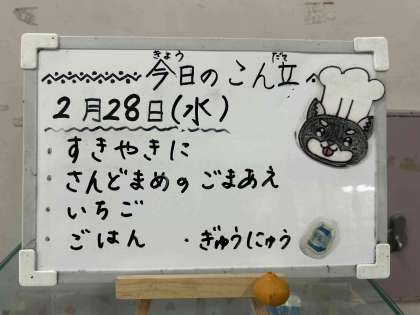 今日のこん立
きょう だて
2月28日(水)
・すきやきに
・さんどまめのごまあえ
・いちご
・ごはん ・ぎゅうにゅう